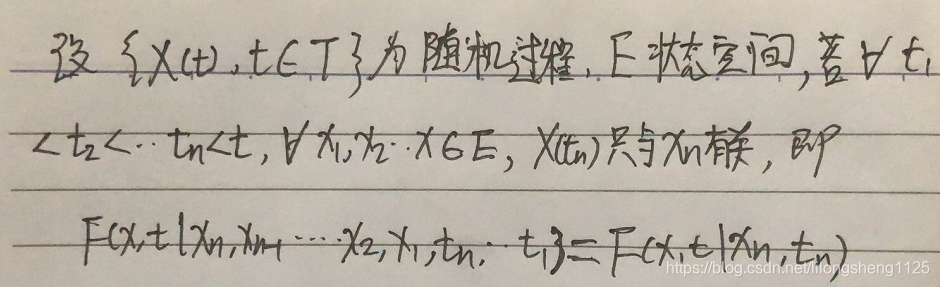 设 {X(t), t∈T}为随机过程, E状态空间, 若∀t₁
<t₂<‥tₙ<t, ∀x₁,x₂‥x∈E, X(tₙ)只与xₙ有关, 即
F(x,t|xₙ,xₙ₋₁‥‥x₂,x₁,tₙ‥t₁)=F(x,t|xₙ,tₙ)
https://blog.csdn.net/lilongsheng1125